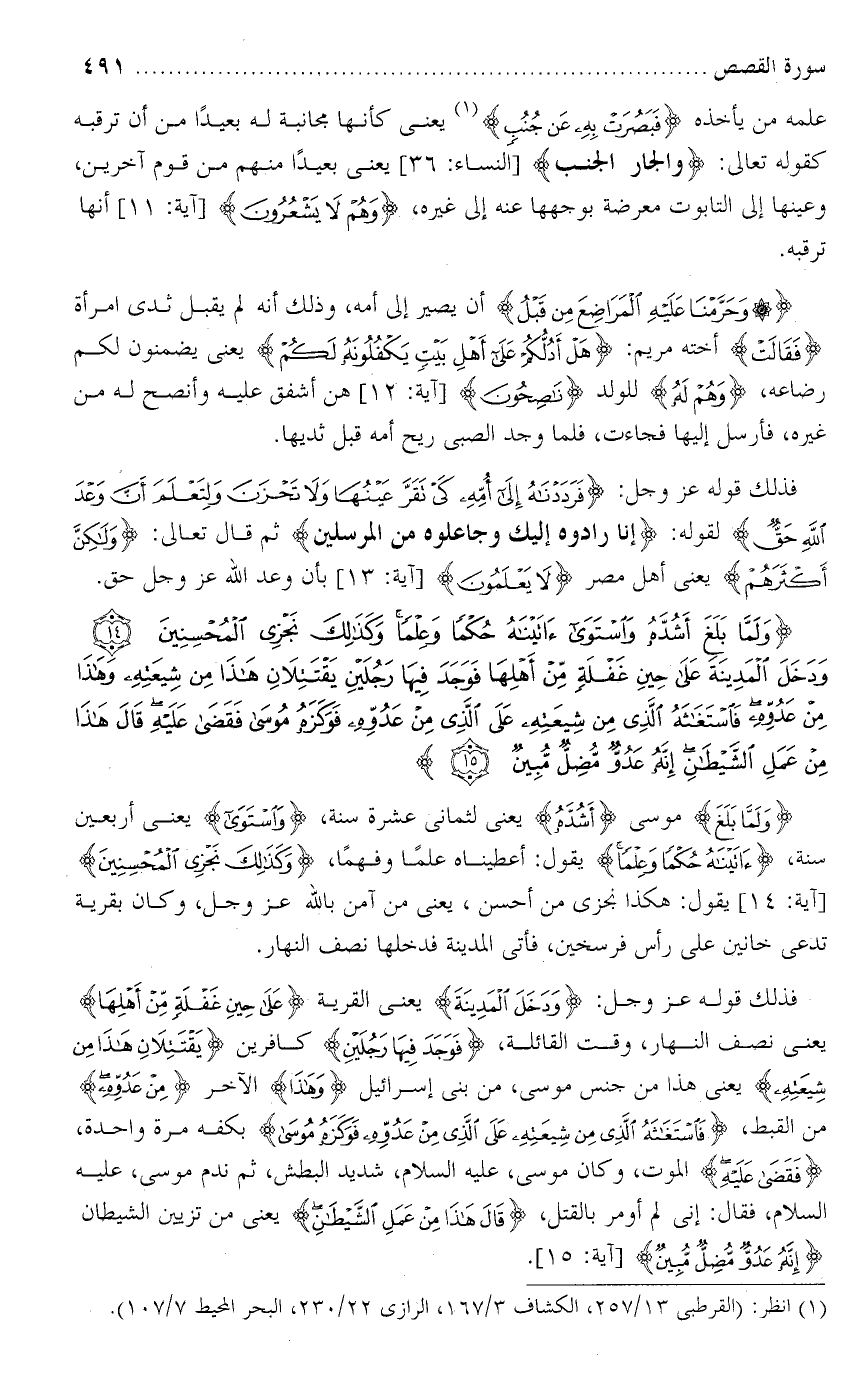 سورة القصص ........................................................................ ٤٩١
علمه من يأخذه ﴿فَبَصُرَتْ بِهِۦ عَن جُنُبٍ﴾(١) يعنى كأنها مجانبة له بعيدًا من أن ترقبه
كقوله تعالى: ﴿والجار الجنب﴾ [النساء: ٣٦] يعنى بعيدًا منهم من قوم آخرين،
وعينها إلى التابوت معرضة بوجهها عنه إلى غيره، ﴿وَهُمْ لَا يَشْعُرُونَ﴾ [آية: ١١] أنها
ترقبه.
﴿۞ وَحَرَّمْنَا عَلَيْهِ ٱلْمَرَاضِعَ مِن قَبْلُ﴾ أن يصير إلى أمه، وذلك أنه لم يقبل ثدى امرأة
﴿فَقَالَتْ﴾ أخته مريم: ﴿هَلْ أَدُلُّكُمْ عَلَىٰٓ أَهْلِ بَيْتٍ يَكْفُلُونَهُۥ لَكُمْ﴾ يعنى يضمنون لكم
رضاعه، ﴿وَهُمْ لَهُۥ﴾ للولد ﴿نَاصِحُونَ﴾ [آية: ١٢] هن أشفق عليه وأنصح له من
غيره، فأرسل إليها فجاءت، فلما وجد الصبى ريح أمه قبل ثديها.
فذلك قوله عز وجل: ﴿فَرَدَدْنَٰهُ إِلَىٰٓ أُمِّهِۦ كَىْ تَقَرَّ عَيْنُهَا وَلَا تَحْزَنَ وَلِتَعْلَمَ أَنَّ وَعْدَ
ٱللَّهِ حَقٌّ﴾ لقوله: ﴿إنا رادوه إليك وجاعلوه من المرسلين﴾ ثم قال تعالى: ﴿وَلَٰكِنَّ
أَكْثَرَهُمْ﴾ يعنى أهل مصر ﴿لَا يَعْلَمُونَ﴾ [آية: ١٣] بأن وعد الله عز وجل حق.
﴿وَلَمَّا بَلَغَ أَشُدَّهُۥ وَٱسْتَوَىٰٓ ءَاتَيْنَٰهُ حُكْمًا وَعِلْمًا ۚ وَكَذَٰلِكَ نَجْزِى ٱلْمُحْسِنِينَ ۝١٤
وَدَخَلَ ٱلْمَدِينَةَ عَلَىٰ حِينِ غَفْلَةٍ مِّنْ أَهْلِهَا فَوَجَدَ فِيهَا رَجُلَيْنِ يَقْتَتِلَانِ هَٰذَا مِن شِيعَتِهِۦ وَهَٰذَا
مِنْ عَدُوِّهِۦ ۖ فَٱسْتَغَٰثَهُ ٱلَّذِى مِن شِيعَتِهِۦ عَلَى ٱلَّذِى مِنْ عَدُوِّهِۦ فَوَكَزَهُۥ مُوسَىٰ فَقَضَىٰ عَلَيْهِ ۖ قَالَ هَٰذَا
مِنْ عَمَلِ ٱلشَّيْطَٰنِ ۖ إِنَّهُۥ عَدُوٌّ مُّضِلٌّ مُّبِينٌ ۝١٥﴾
﴿وَلَمَّا بَلَغَ﴾ موسى ﴿أَشُدَّهُۥ﴾ يعنى لثمانى عشرة سنة، ﴿وَٱسْتَوَىٰٓ﴾ يعنى أربعين
سنة، ﴿ءَاتَيْنَٰهُ حُكْمًا وَعِلْمًا ۚ﴾ يقول: أعطيناه علمًا وفهمًا، ﴿وَكَذَٰلِكَ نَجْزِى ٱلْمُحْسِنِينَ﴾
[آية: ١٤] يقول: هكذا نجزى من أحسن ، يعنى من آمن بالله عز وجل، وكان بقرية
تدعى خانين على رأس فرسخين، فأتى المدينة فدخلها نصف النهار.
فذلك قوله عز وجل: ﴿وَدَخَلَ ٱلْمَدِينَةَ﴾ يعنى القرية ﴿عَلَىٰ حِينِ غَفْلَةٍ مِّنْ أَهْلِهَا﴾
يعنى نصف النهار، وقت القائلة، ﴿فَوَجَدَ فِيهَا رَجُلَيْنِ﴾ كافرين ﴿يَقْتَتِلَانِ هَٰذَا مِن
شِيعَتِهِۦ﴾ يعنى هذا من جنس موسى، من بنى إسرائيل ﴿وَهَٰذَا﴾ الآخر ﴿مِنْ عَدُوِّهِۦ ۖ﴾
من القبط، ﴿فَٱسْتَغَٰثَهُ ٱلَّذِى مِن شِيعَتِهِۦ عَلَى ٱلَّذِى مِنْ عَدُوِّهِۦ فَوَكَزَهُۥ مُوسَىٰ﴾ بكفه مرة واحدة،
﴿فَقَضَىٰ عَلَيْهِ ۖ﴾ الموت، وكان موسى، عليه السلام، شديد البطش، ثم ندم موسى، عليه
السلام، فقال: إنى لم أومر بالقتل، ﴿قَالَ هَٰذَا مِنْ عَمَلِ ٱلشَّيْطَٰنِ ۖ﴾ يعنى من تزيين الشيطان
﴿إِنَّهُۥ عَدُوٌّ مُّضِلٌّ مُّبِينٌ﴾ [آية: ١٥].
(١) انظر: (القرطبى ٢٥٧/١٣، الكشاف ١٦٧/٣، الرازى ٢٣٠/٢٢، البحر المحيط ١٠٧/٧).